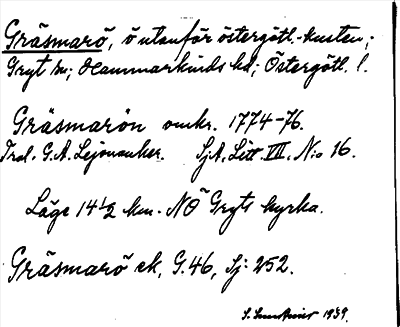 Gräsmarö, ö utanför östergötl.-kusten;
Gryt sn; Hammarkinds hd; Östergötl. l.
Gräsmarön omkr. 1774-76.
Trol. G.A. Lejonanker. SjA, Litt. VIII, N:o 16.
Läge 14 1/2 km. NÖ Gryts kyrka.
Gräsmarö ek, G.46, Sj: 252.
1939.